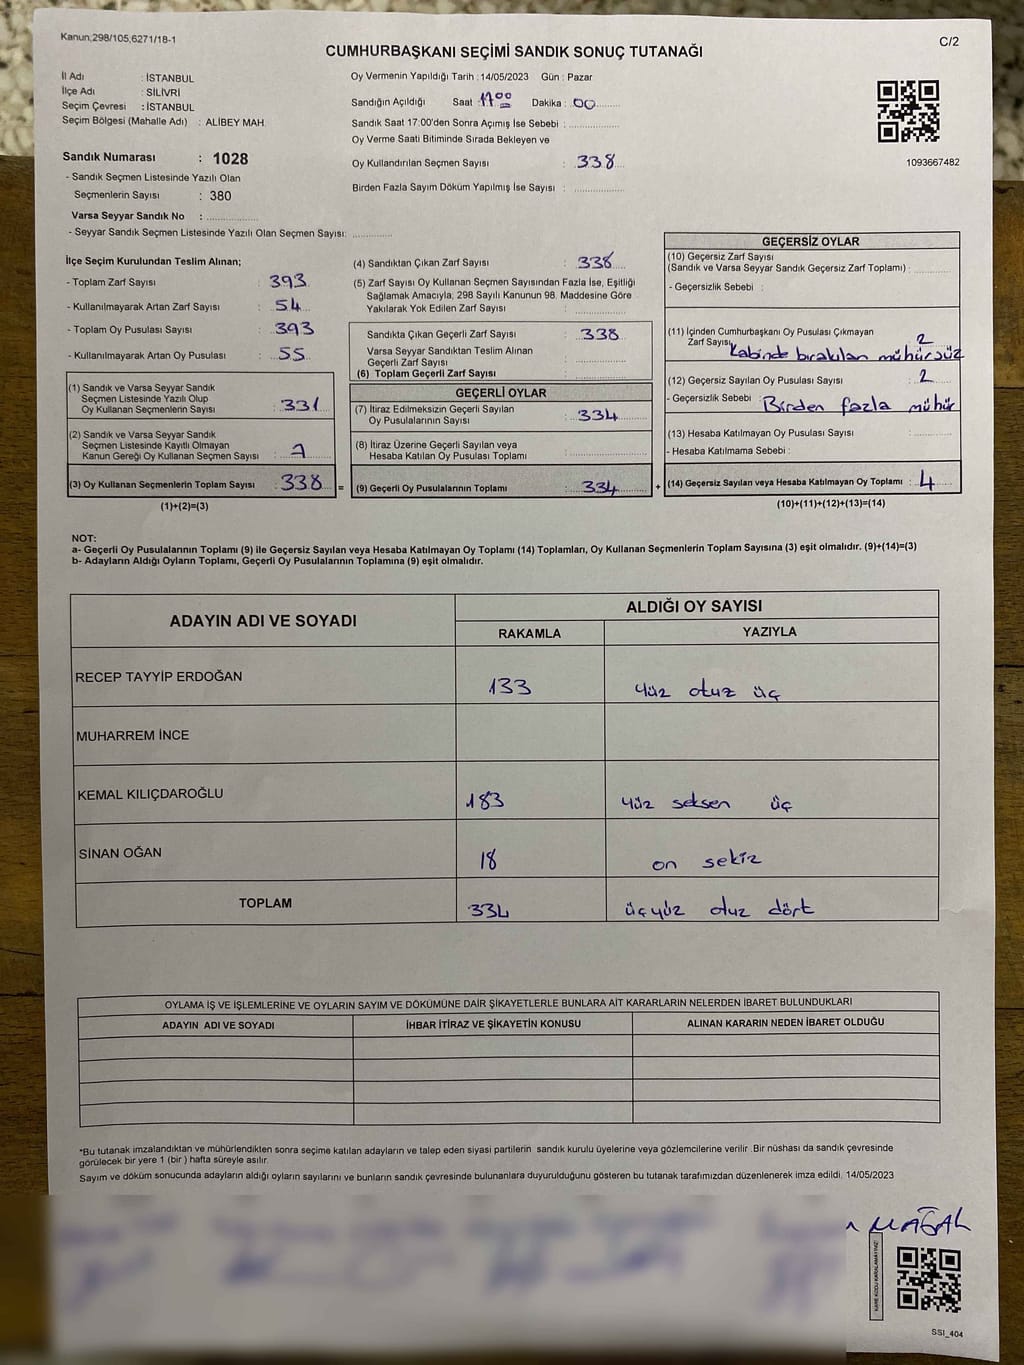 Kanun,298/105,6271/18-1
C/2
CUMHURBAŞKANI SEÇİMİ SANDIK SONUÇ TUTANAĞI
İl Adı : İSTANBUL
İlçe Adı : SİLİVRİ
Seçim Çevresi : İSTANBUL
Seçim Bölgesi (Mahalle Adı) : ALİBEY MAH.
Sandık Numarası : 1028
- Sandık Seçmen Listesinde Yazılı Olan
Seçmenlerin Sayısı : 380
Varsa Seyyar Sandık No :
- Seyyar Sandık Seçmen Listesinde Yazılı Olan Seçmen Sayısı:
Oy Vermenin Yapıldığı Tarih : 14/05/2023 Gün : Pazar
Sandığın Açıldığı Saat : 17.00 Dakika : 00
Sandık Saat 17:00'den Sonra Açımış İse Sebebi :
Oy Verme Saati Bitiminde Sırada Bekleyen ve
Oy Kullandırılan Seçmen Sayısı : 338
Birden Fazla Sayım Döküm Yapılmış İse Sayısı :
1093667482
İlçe Seçim Kurulundan Teslim Alınan;
- Toplam Zarf Sayısı : 393
- Kullanılmayarak Artan Zarf Sayısı : 54
- Toplam Oy Pusulası Sayısı : 393
- Kullanılmayarak Artan Oy Pusulası : 55
(1) Sandık ve Varsa Seyyar Sandık
Seçmen Listesinde Yazılı Olup
Oy Kullanan Seçmenlerin Sayısı : 331
(2) Sandık ve Varsa Seyyar Sandık
Seçmen Listesinde Kayıtlı Olmayan
Kanun Gereği Oy Kullanan Seçmen Sayısı : 7
(3) Oy Kullanan Seçmenlerin Toplam Sayısı : 338 =
(1)+(2)=(3)
(4) Sandıktan Çıkan Zarf Sayısı : 338
(5) Zarf Sayısı Oy Kullanan Seçmen Sayısından Fazla İse, Eşitliği
Sağlamak Amacıyla, 298 Sayılı Kanunun 98. Maddesine Göre
Yakılarak Yok Edilen Zarf Sayısı :
Sandıkta Çıkan Geçerli Zarf Sayısı : 338
Varsa Seyyar Sandıktan Teslim Alınan
Geçerli Zarf Sayısı :
(6) Toplam Geçerli Zarf Sayısı :
GEÇERLİ OYLAR
(7) İtiraz Edilmeksizin Geçerli Sayılan
Oy Pusulalarının Sayısı : 334
(8) İtiraz Üzerine Geçerli Sayılan veya
Hesaba Katılan Oy Pusulası Toplamı :
(9) Geçerli Oy Pusulalarının Toplamı : 334 +
GEÇERSİZ OYLAR
(10) Geçersiz Zarf Sayısı
(Sandık ve Varsa Seyyar Sandık Geçersiz Zarf Toplamı) :
- Geçersizlik Sebebi :
(11) İçinden Cumhurbaşkanı Oy Pusulası Çıkmayan
Zarf Sayısı : 2
Kabinde bırakılan mühürsüz
(12) Geçersiz Sayılan Oy Pusulası Sayısı : 2
- Geçersizlik Sebebi : Birden fazla mühür
(13) Hesaba Katılmayan Oy Pusulası Sayısı :
- Hesaba Katılmama Sebebi :
(14) Geçersiz Sayılan veya Hesaba Katılmayan Oy Toplamı : 4
(10)+(11)+(12)+(13)=(14)
NOT:
a- Geçerli Oy Pusulalarının Toplamı (9) ile Geçersiz Sayılan veya Hesaba Katılmayan Oy Toplamı (14) Toplamları, Oy Kullanan Seçmenlerin Toplam Sayısına (3) eşit olmalıdır. (9)+(14)=(3)
b- Adayların Aldığı Oyların Toplamı, Geçerli Oy Pusulalarının Toplamına (9) eşit olmalıdır.
ADAYIN ADI VE SOYADI
ALDIĞI OY SAYISI
RAKAMLA YAZIYLA
RECEP TAYYİP ERDOĞAN 133 yüz otuz üç
MUHARREM İNCE
KEMAL KILIÇDAROĞLU 183 yüz seksen üç
SİNAN OĞAN 18 on sekiz
TOPLAM 334 üçyüz otuz dört
OYLAMA İŞ VE İŞLEMLERİNE VE OYLARIN SAYIM VE DÖKÜMÜNE DAİR ŞİKAYETLERLE BUNLARA AİT KARARLARIN NELERDEN İBARET BULUNDUKLARI
ADAYIN ADI VE SOYADI İHBAR İTİRAZ VE ŞİKAYETİN KONUSU ALINAN KARARIN NEDEN İBARET OLDUĞU
*Bu tutanak imzalandıktan ve mühürlendikten sonra seçime katılan adayların ve talep eden siyasi partilerin sandık kurulu üyelerine veya gözlemcilerine verilir. Bir nüshası da sandık çevresinde
görülecek bir yere 1 (bir) hafta süreyle asılır.
Sayım ve döküm sonucunda adayların aldığı oyların sayılarını ve bunların sandık çevresinde bulunanlara duyurulduğunu gösteren bu tutanak tarafımızdan düzenlenerek imza edildi. 14/05/2023
MAĞAL
KARE KODU KARALAMAYINIZ!
SSI_404